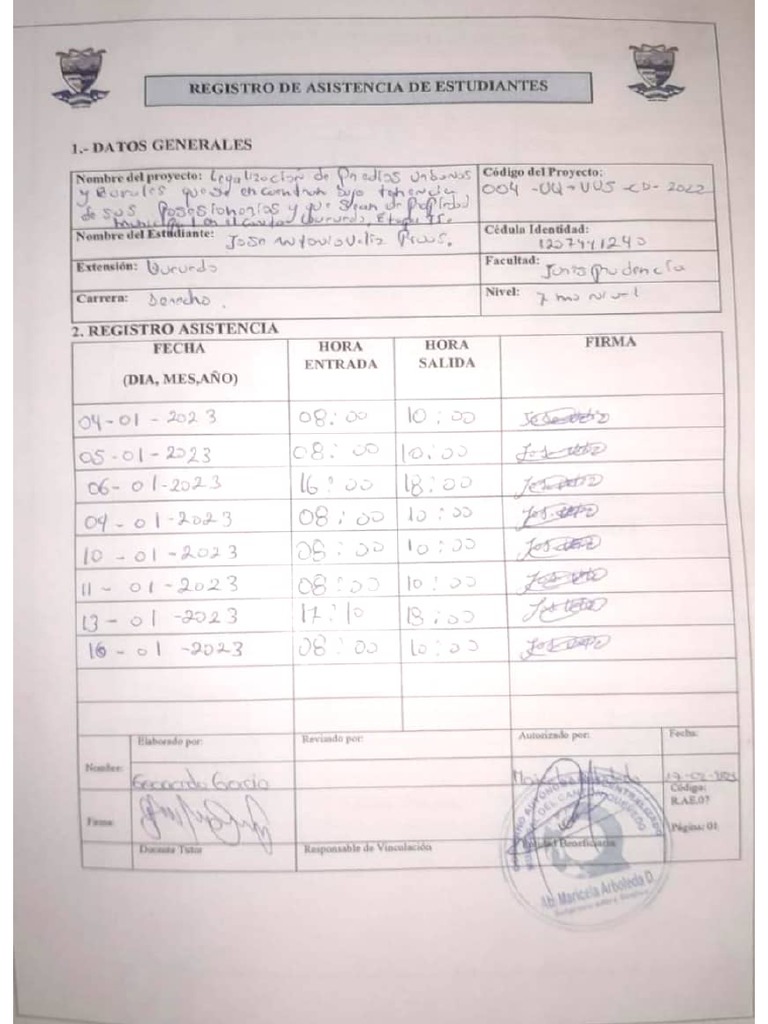 REGISTRO DE ASISTENCIA DE ESTUDIANTES
1.- DATOS GENERALES
Nombre del proyecto: Legalización de Predios Urbanos
y Rurales que se encuentran bajo tenencia
de sus Posesionarios y que sean de Propiedad
Municipal en el Canton Quevedo, Etapa
Código del Proyecto:
004 -UQ-VVS-CD-2022
Nombre del Estudiante: Jose Antonio Veliz
Cédula Identidad:
1207441240
Extensión: Quevedo
Facultad:
Jurisprudencia
Carrera: Derecho.
Nivel: 7mo nivel
2. REGISTRO ASISTENCIA
FECHA
(DIA, MES,AÑO)
HORA
ENTRADA
HORA
SALIDA
FIRMA
04-01-2023 08:00 10:00
05-01-2023 08:00 10:00
06-01-2023 16:00 18:00
09-01-2023 08:00 10:00
10-01-2023 08:00 10:00
11-01-2023 08:00 10:00
13-01-2023 17:10 18:00
16-01-2023 08:00 10:00
Elaborado por: Revisado por: Autorizado por: Fecha:
Nombre: Garcia
Código:
R.AE.07
Firma:
Página: 01
Docente Tutor Responsable de Vinculación Beneficiaria
Ab. Maricela Arboleda D.